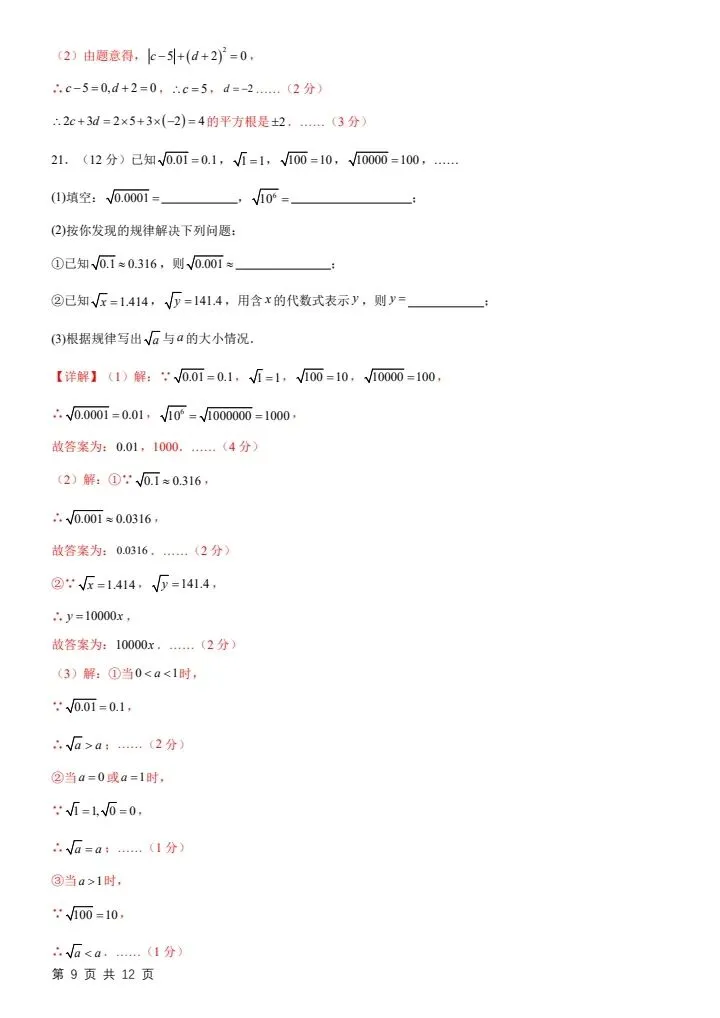 （2）由题意得，|c−5|+(d+2)²=0，
∴c−5=0,d+2=0，∴c=5，d=−2……（2 分）
∴2c+3d=2×5+3×(−2)=4的平方根是±2．……（3 分）
21．（12 分）已知√0.01=0.1，√1=1，√100=10，√10000=100，……
(1)填空：√0.0001=____________，√10⁶=____________________；
(2)按你发现的规律解决下列问题：
①已知√0.1≈0.316，则√0.001≈________________；
②已知√x=1.414，√y=141.4，用含x的代数式表示y，则y=____________；
(3)根据规律写出√a与a的大小情况．
【详解】（1）解：∵√0.01=0.1，√1=1，√100=10，√10000=100，
∴√0.0001=0.01，√10⁶=√1000000=1000，
故答案为：0.01，1000．……（4 分）
（2）解：①∵√0.1≈0.316，
∴√0.001≈0.0316，
故答案为：0.0316．……（2 分）
②∵√x=1.414，√y=141.4，
∴y=10000x，
故答案为：10000x．……（2 分）
（3）解：①当0<a<1时，
∵√0.01=0.1，
∴√a>a；……（2 分）
②当a=0或a=1时，
∵√1=1,√0=0，
∴√a=a；……（1 分）
③当a>1时，
∵√100=10，
∴√a<a．……（1 分）
第 9 页 共 12 页